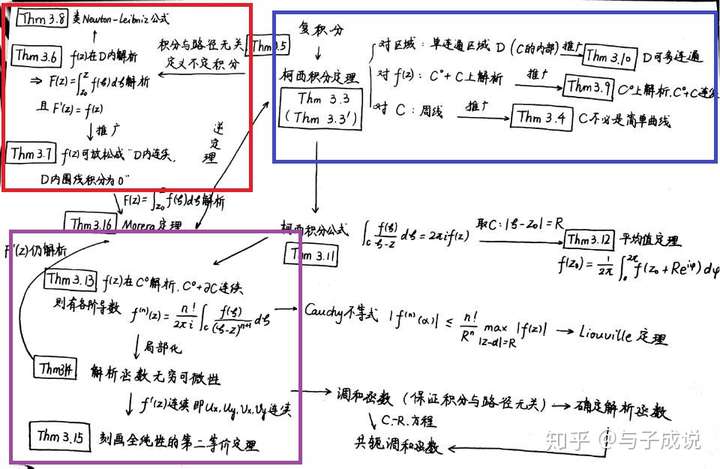 Thm 3.8 类Newton-Leibniz公式
Thm 3.6 f(z)在D内解析
⇒ F(z)=∫_{z₀}^{z} f(ζ)dζ解析
且 F'(z)=f(z)
推广
Thm 3.7 f(z)可放松成"D内连续,
D内围线积分为0"
积分与路径无关
定义不定积分
Thm 3.5
逆定理
复积分
柯西积分定理
Thm 3.3
(Thm 3.3')
对区域: 单连通区域 D (C的内部) 推广 Thm 3.10 D可多连通
对 f(z): C°+C上解析 推广 Thm 3.9 C°上解析, C°+C连续
对 C: 周线 推广 Thm 3.4 C不必是简单曲线
F(z)=∫_{z₀}^{z} f(ζ)dζ解析
Thm 3.16 Morera定理
F'(z)仍解析
柯西积分公式 ∫_C f(ζ)/(ζ-z) dζ = 2πi f(z) 取C: |ζ-z₀|=R
Thm 3.11
Thm 3.12 平均值定理
f(z₀)=1/2π ∫_0^{2π} f(z₀+Re^{iφ})dφ
Thm 3.13 f(z)在C°解析, C°+∂C连续
则有各阶导数 f^{(n)}(z)= n!/2πi ∫_C f(ζ)/(ζ-z)^{n+1} dζ
Cauchy不等式 |f^{(n)}(α)| ≤ n!/R^n max_{|z-α|=R} |f(z)| → Liouville 定理
局部化
Thm 3.14 解析函数无穷可微性
f'(z)连续即Ux, Uy, Vx, Vy连续
Thm 3.15 刻画全纯性的第二等价定理
调和函数 (保证积分与路径无关) → 确定解析函数
C.-R. 方程
共轭调和函数
知乎 @与子成说